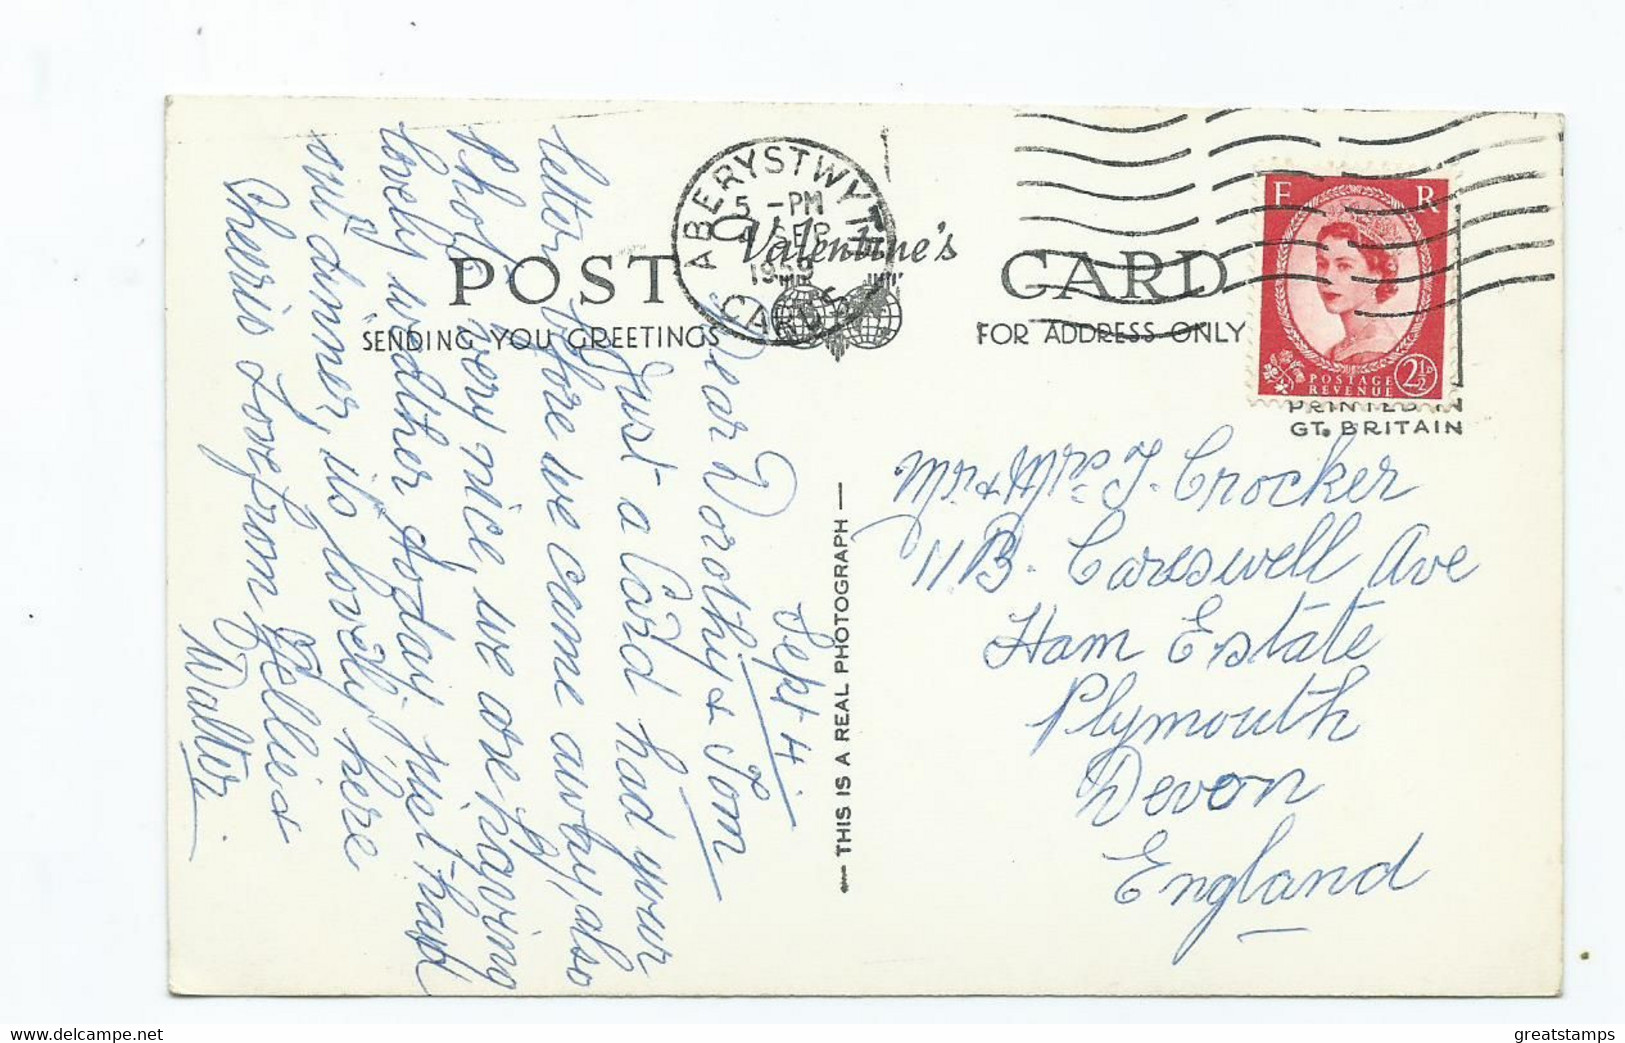 ABERYSTWYTH
5 - PM
4 SEP
1959
CARDS
Valentine's
POST CARD
SENDING YOU GREETINGS
FOR ADDRESS ONLY
E R
POSTAGE
REVENUE
2½D
PRINTED IN
GT. BRITAIN
THIS IS A REAL PHOTOGRAPH
Sept 4.
Dear Dorothy & Tom
Just a Card had your
letter before we came away, also
Photo very nice, we are having
lovely weather today just had
our dinner, its lovely here
Cheerio Love from Nellie &
Walter.
Mr & Mrs T. Crocker
11 B. Careswell Ave
Ham Estate
Plymouth
Devon
England
delcampe.net
greatstamps